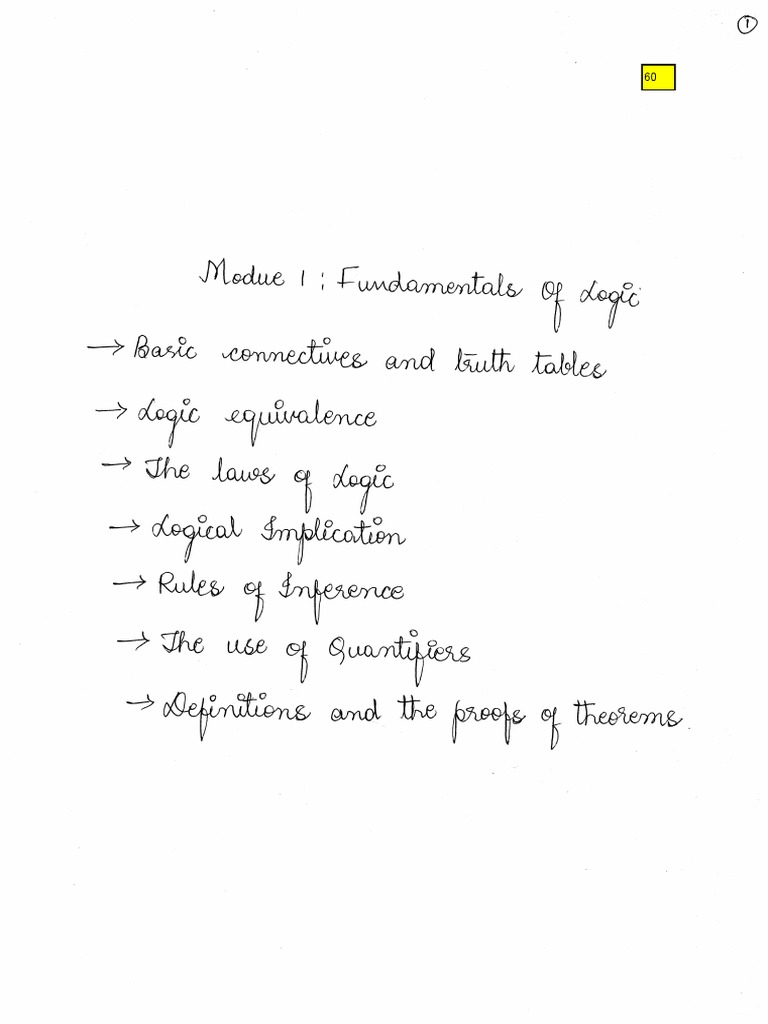 1
60
Modue 1 : Fundamentals Of Logic
→ Basic connectives and truth tables
→ Logic equivalence
→ The laws of Logic
→ Logical Implication
→ Rules of Inference
→ The use of Quantifiers
→ Definitions and the proofs of theorems.